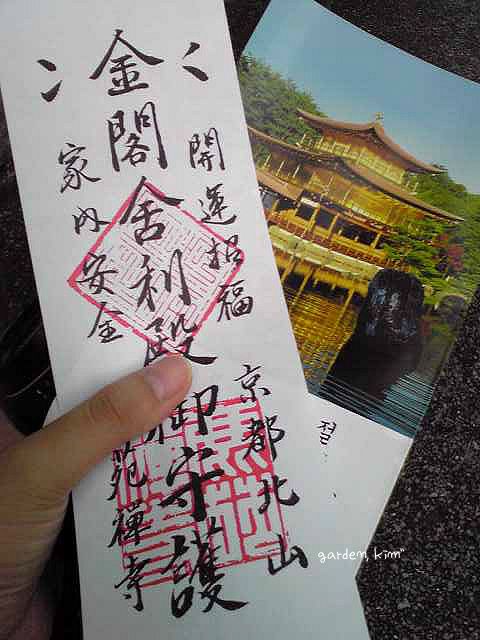 開運招福
京都北山
金閣舍利殿御守護
家内安全
苑禪寺
절..
garden, kim"